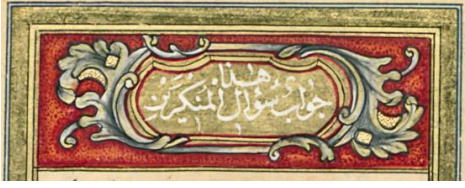 هذا جواب سؤال المنكرين